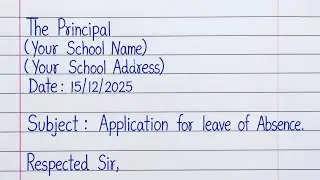 The Principal
(Your School Name)
(Your School Address)
Date: 15/12/2025
Subject: Application for leave of Absence.
Respected Sir,